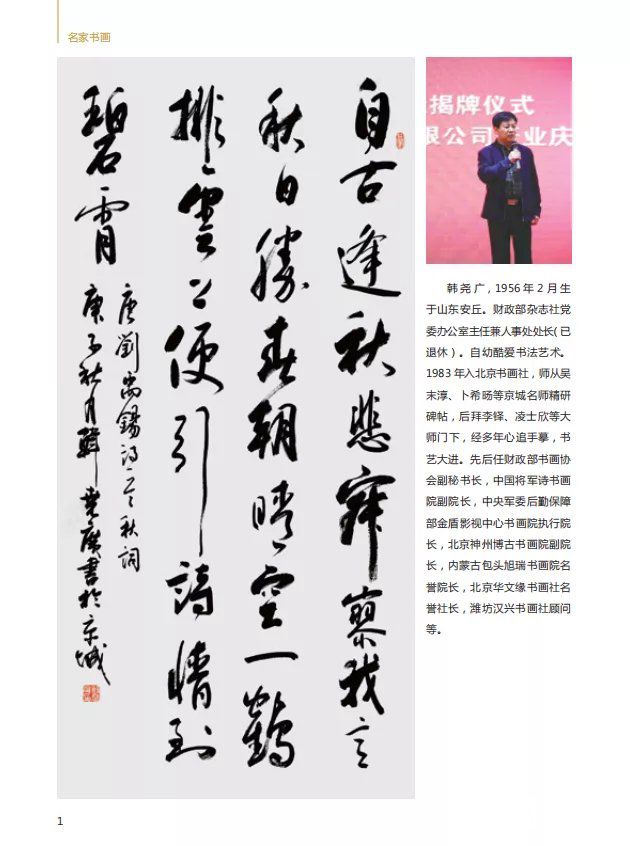 名家书画
自古逢秋悲寂寥我言
秋日勝春朝晴空一鶴
排雲上便引詩情到
碧霄
唐劉禹錫詩一首秋詞
庚子秋月韓堯廣書於京城
揭牌仪式
限公司 业庆
韩尧广，1956 年 2 月生
于山东安丘。财政部杂志社党
委办公室主任兼人事处处长(已
退休）。自幼酷爱书法艺术。
1983 年入北京书画社，师从吴
未淳、卜希旸等京城名师精研
碑帖，后拜李铎、凌士欣等大
师门下，经多年心追手摹，书
艺大进。先后任财政部书画协
会副秘书长，中国将军诗书画
院副院长，中央军委后勤保障
部金盾影视中心书画院执行院
长，北京神州博古书画院副院
长，内蒙古包头旭瑞书画院名
誉院长，北京华文缘书画社名
誉社长，潍坊汉兴书画社顾问
等。
1